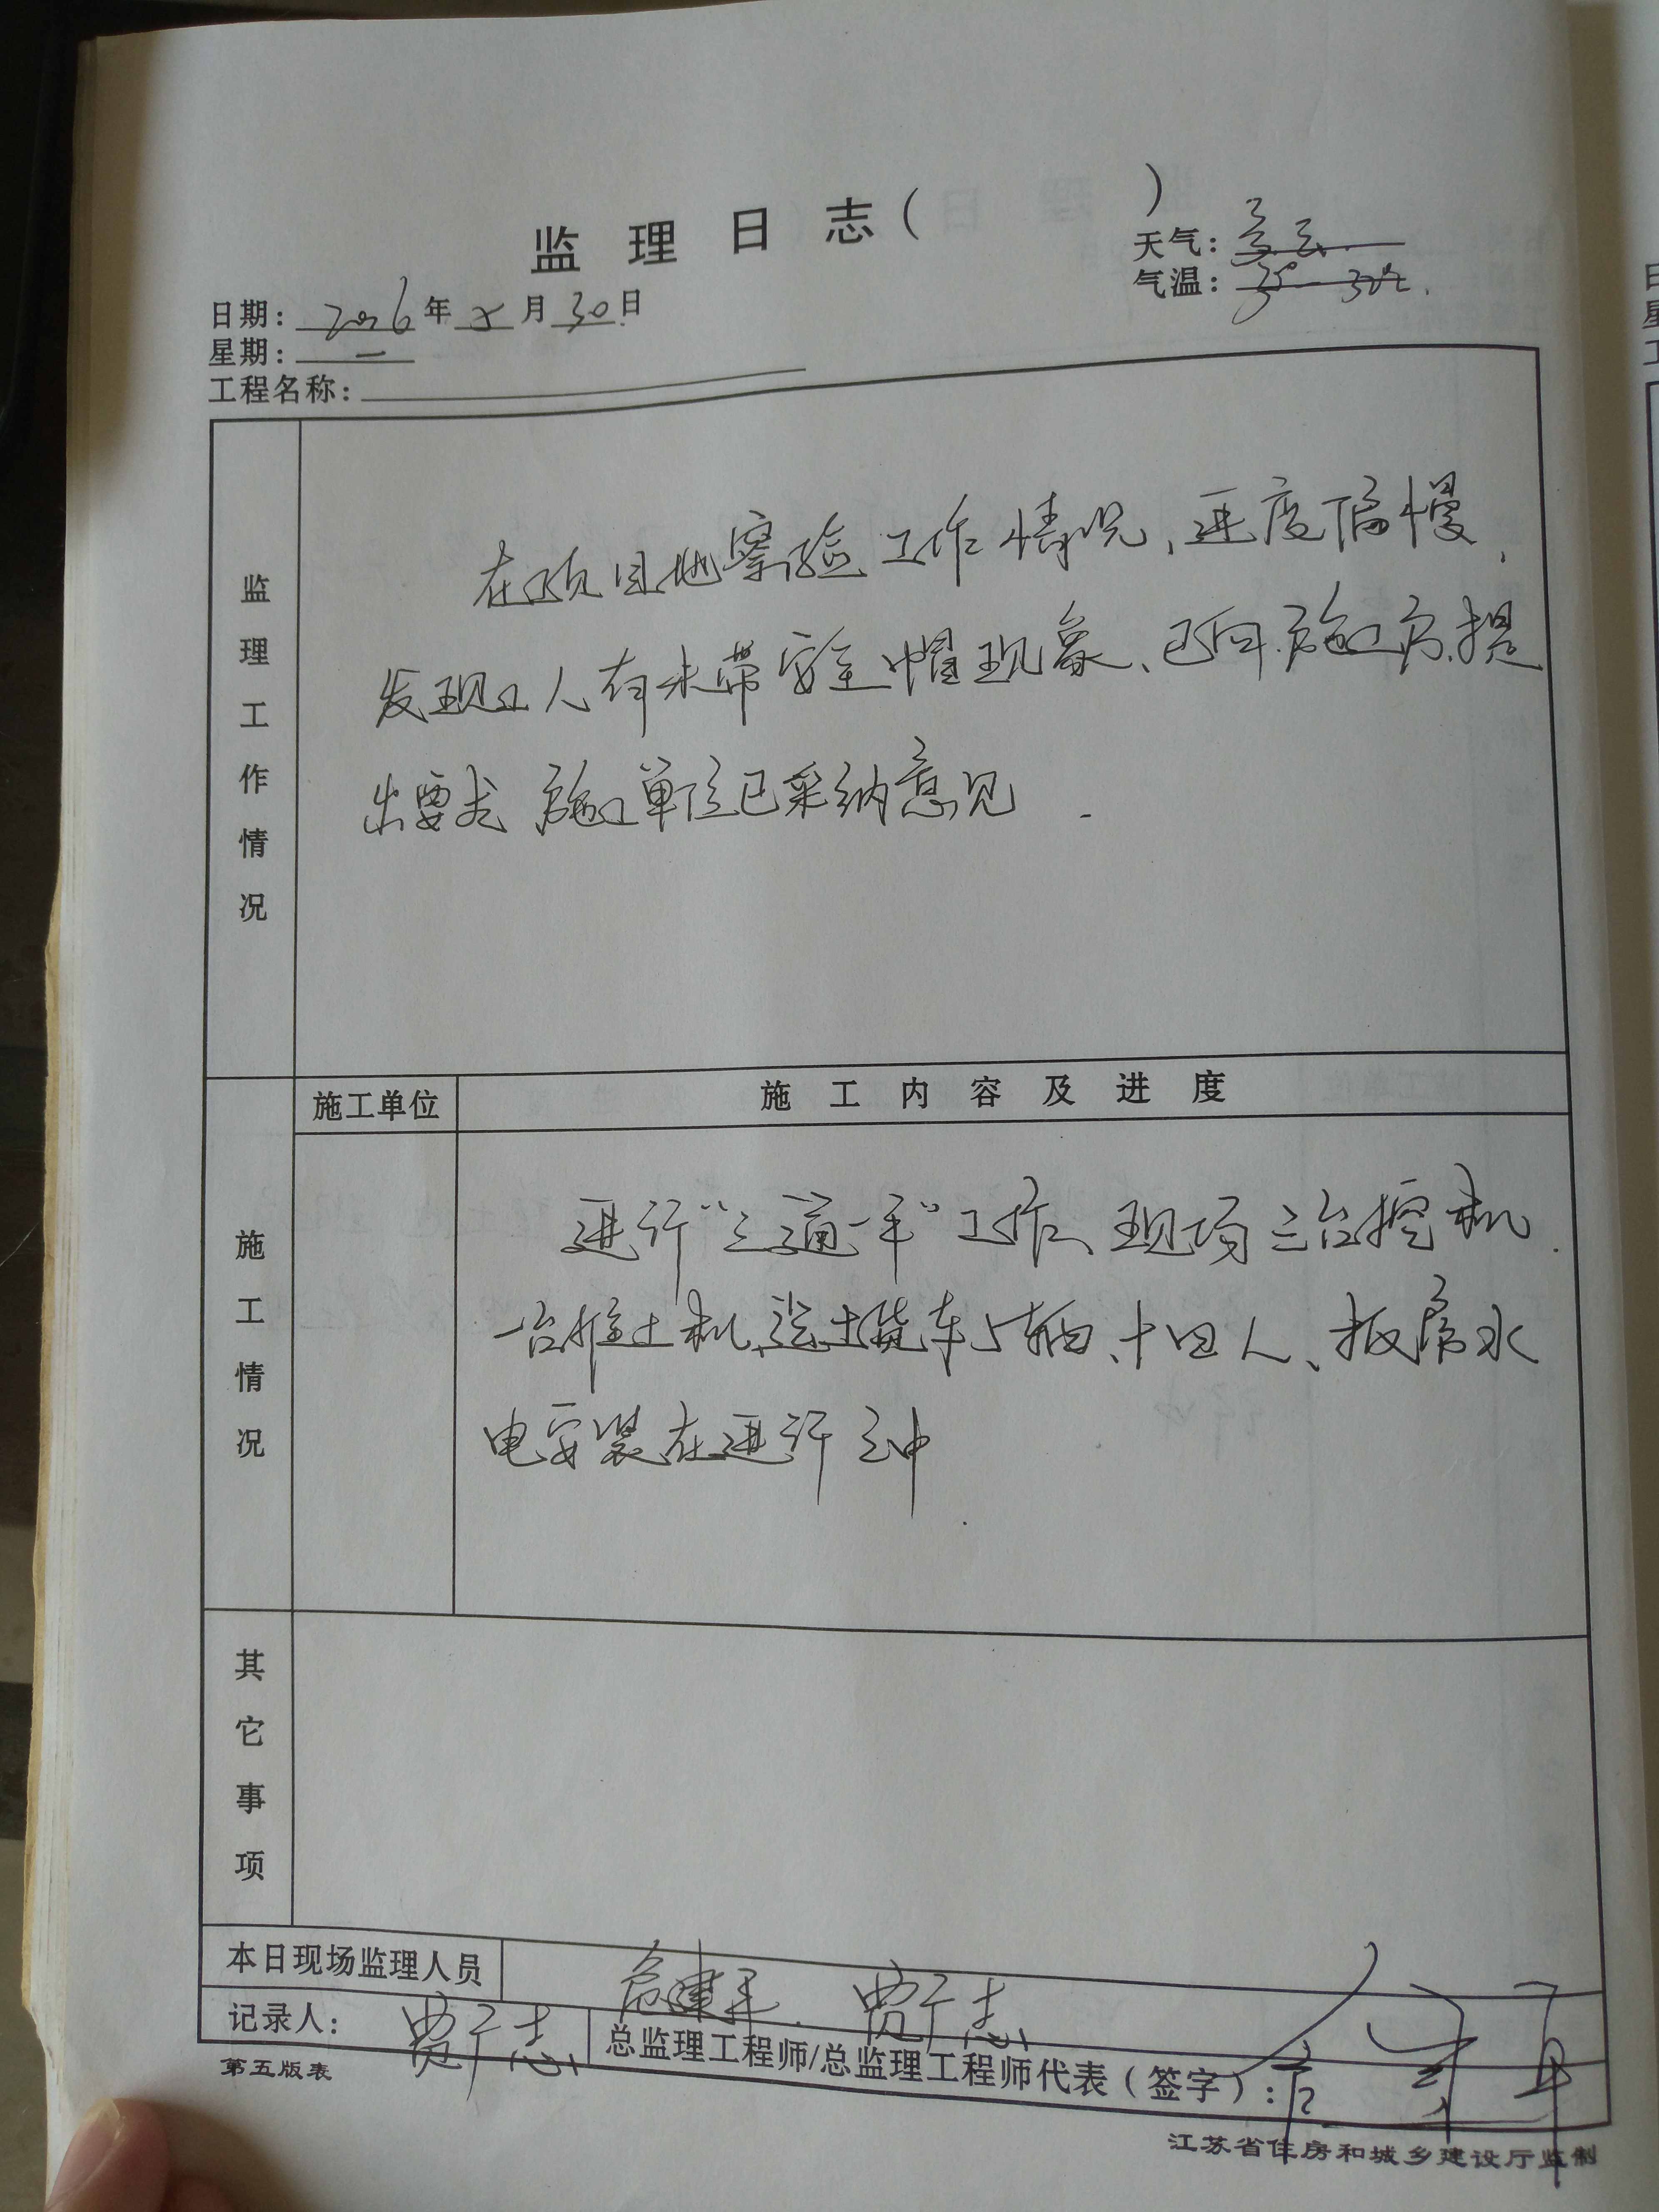 监理日志( )
天气：多云
气温：
日期：2016年5月30日
星期：一
工程名称：
监理工作情况
在项目地察验工作情况、进度偏慢、
发现工人有未带安全帽现象、已向施工方提
出要求 施工单位已采纳意见.
施工单位
施工内容及进度
施工情况
进行"三通一平"工作、现场三台挖机.
一台推土机、运土货车5辆、十四人、板房水
电安装在进行之中.
其它事项
本日现场监理人员
贾广志
记录人：贾广志
总监理工程师/总监理工程师代表(签字)：
第五版表
江苏省住房和城乡建设厅监制